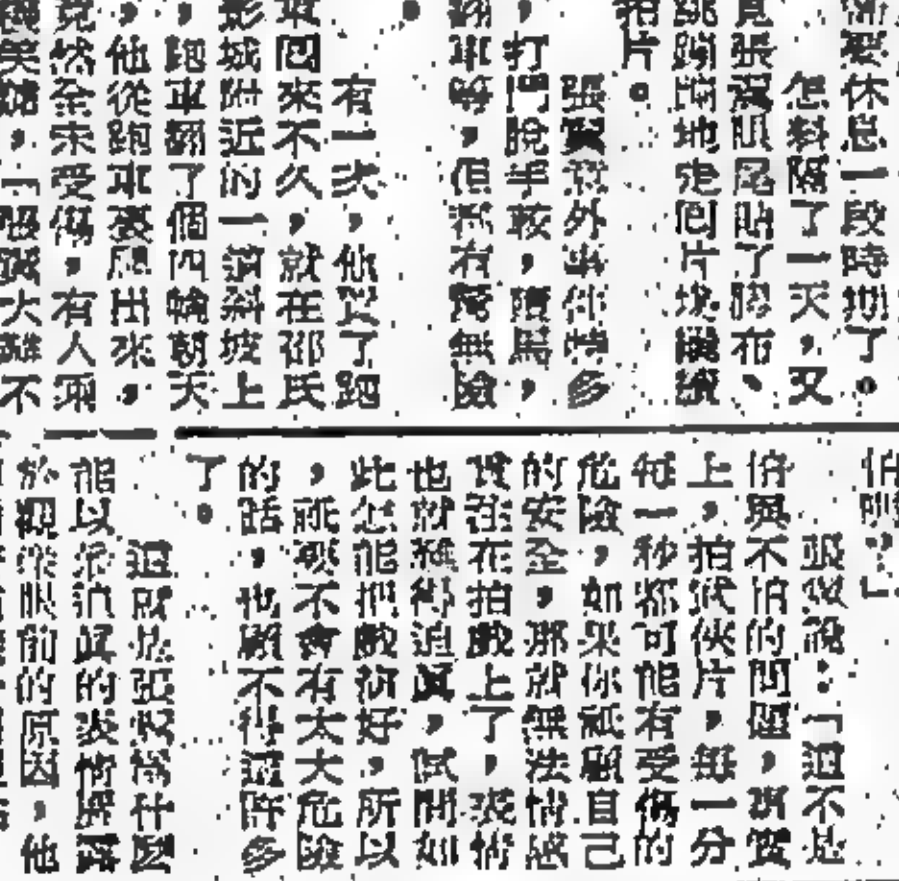 需要休息一段時期了。
怎料隔了一天，又
見張翼眼尾貼了膠布、
地走回片場繼續
拍片。
張翼意外事件特多
，打鬥脫手骹，墮馬，
翻車等，但都有驚無險
有一次，他買了跑
車回來不久，就在邵氏
影城附近的一道斜坡上
，跑車翻了個四輪朝天
，他從跑車裏爬出來，
竟然全未受傷，有人
笑，「大難不
怕
張翼說：「這不是
怕與不怕的問題，其實
上，拍武俠片，每一分
每一秒都可能有受傷的
危險，如果你祇顧自己
的安全，那就無法情感
貫注在拍戲上了，表情
也就難得迫真，試問如
此怎能把戲演好，所以
，祇要不會有太大危險
的話，也顧不得這許多
了。
這就是張翼為什麼
能以逼真的表情
於觀眾眼前的原因，他